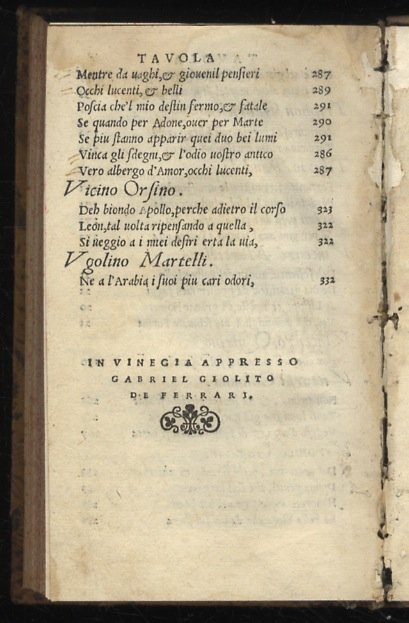 TAVOLA
Mentre da uaghi,& giouenil pensieri 287
Occhi lucenti, & belli 289
Poscia che'l mio destin fermo,& fatale 291
Se quando per Adone,ouer per Marte 290
Se piu stanno apparir quei duo bei lumi 291
Vinca gli sdegni,& l'odio uostro antico 286
Vero albergo d'Amor,occhi lucenti, 287
Vicino Orsino.
Deh biondo Apollo,perche adietro il corso 323
Leon,tal uolta ripensando a quella, 322
Si ueggio a i miei desiri erta la uia, 322
Vgolino Martelli.
Ne a l'Arabia i suoi piu cari odori, 332
IN VINEGIA APPRESSO
GABRIEL GIOLITO
DE FERRARI.